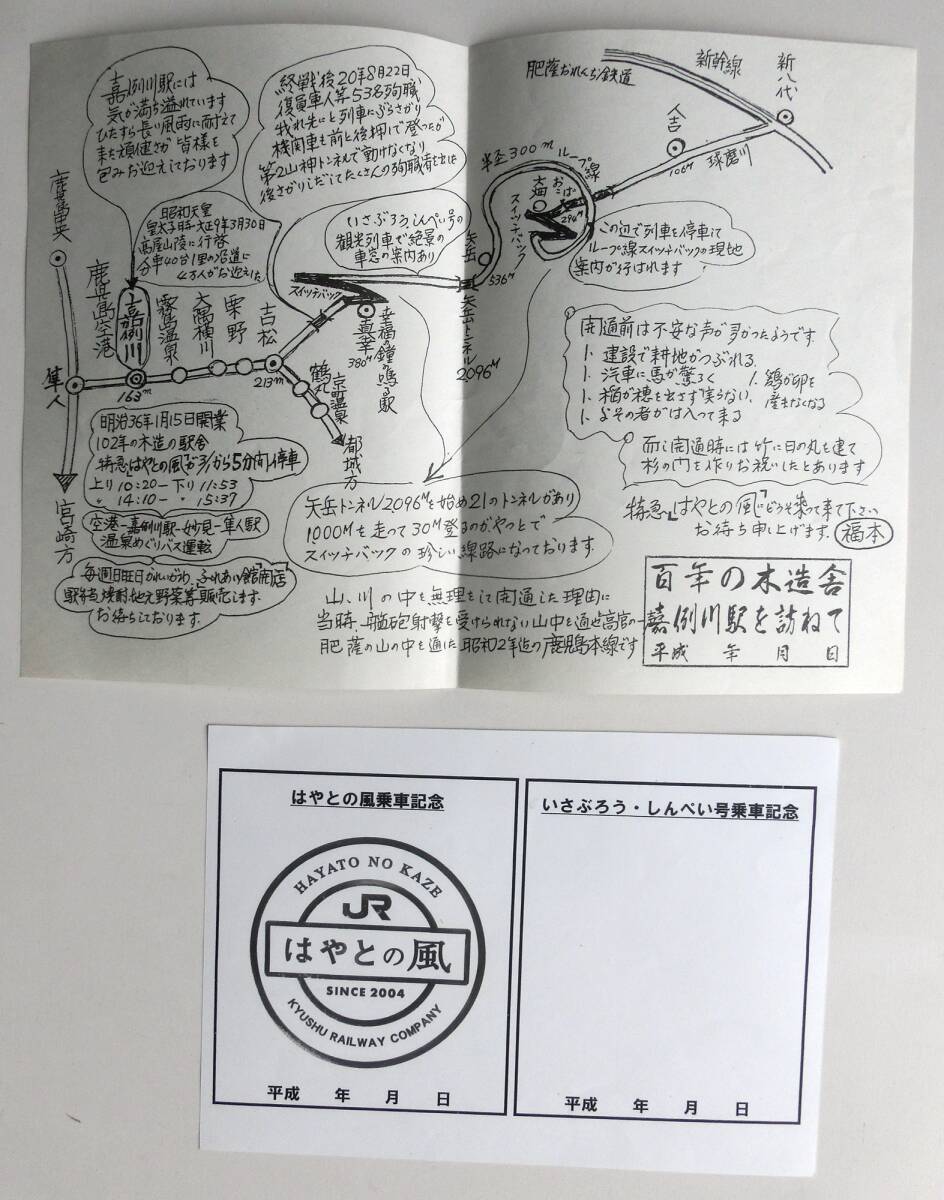 嘉例川駅には
気が満ち溢れています
ひたすら長い風雨に耐えて
来た頑健さが皆様を
包みお迎えしております
終戦後20年8月22日
復員軍人等53名殉職
我れ先にと列車にぶらさがり
機関車も前と後押しで登ったが
第2山神トンネルで動けなくなり
後さがりしだしてたくさんの殉職者を
昭和天皇
皇太子時大正9年3月30日
高屋山陵に行啓
分車40台1里の沿道に
4万人がお迎えした
いさぶろう、しんぺい号の
観光列車で絶景の
車窓の案内あり
肥薩おれんぢ鉄道
新幹線
新八代
人吉
106m
球磨川
半径300m ループ線
大畑
おこば
294m
スイッチバック
この辺で列車を停車して
ループ線スイッチバックの現地
案内が行はれます
鹿児島中央
鹿児島空港
隼人
宮崎方
嘉例川
163m
霧島温泉
大隅横川
栗野
吉松
213m
鶴丸
京町温泉
都城方
スイッチバック
真幸
380m
幸福の鐘の鳴る駅
矢岳
536M
矢岳トンネル2,096M
開通前は不安な声が多かったようです
1. 建設で耕地がつぶれる
1. 汽車に馬が驚ろく
1. 鶏が卵を
産まなくなる
1. 稲が穂を出さず実らない
1. よその者がは入って来る
而し開通時には竹に日の丸を建て
杉の門を作りお祝いしたとあります
明治36年1月15日開業
102年の木造の駅舎
特急「はやとの風」が3/から5分間停車
上り10:20－下り11:53
〃 14:10－〃 15:37
空港－嘉例川駅－妙見－隼人駅
温泉めぐりバス運転
毎週日曜日かれいがわ、ふれあい館開店
駅弁焼酎、地元野菜等販売します。
お待ちしております。
矢岳トンネル2096Mを始め21のトンネルがあり
1000Mを走って30M登るのがやっとで
スイッチバックの珍しい線路になっております。
特急、「はやとの風」でどうぞ来て下さい
お待ち申し上げます。福本
山、川の中を無理をして開通した理由に
当時、艦砲射撃を受けられない山中を通せと高官の一
肥薩の山の中を通した昭和2年迄の鹿児島本線です
百年の木造舎
嘉例川駅を訪ねて
平成 年 月 日
はやとの風乗車記念
HAYATO NO KAZE
JR
はやとの風
SINCE 2004
KYUSHU RAILWAY COMPANY
平成 年 月 日
いさぶろう・しんぺい号乗車記念
平成 年 月 日